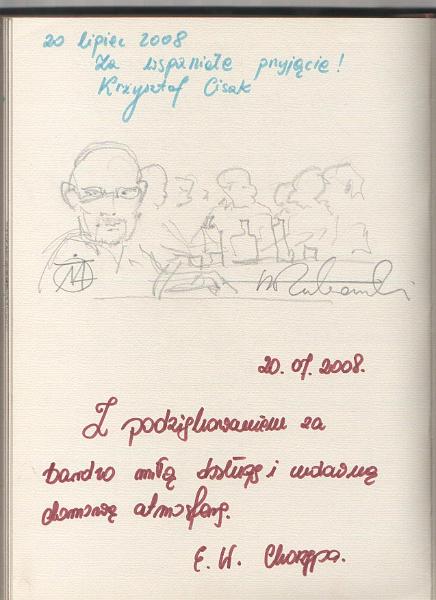 20 lipiec 2008
Za wspaniałe przyjęcie!
Krzysztof Cisak
20. 07. 2008.
Z podziękowaniem za
bardzo miłą obsługę i
domową atmosferę.
E. W.